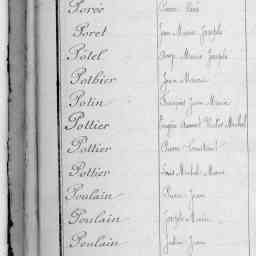 Porée Pierre René
Poret Jean Marie Joseph
Pôtel Marie Joseph
Pothier Jean Marie
Potin François Jean Marie
Pottier Eugène Victor Michel
Pottier Pierre Constant
Pottier Louis Michel Marie
Poulain Pierre Jean
Poulain Joseph Marie
Poulain Julien Jean